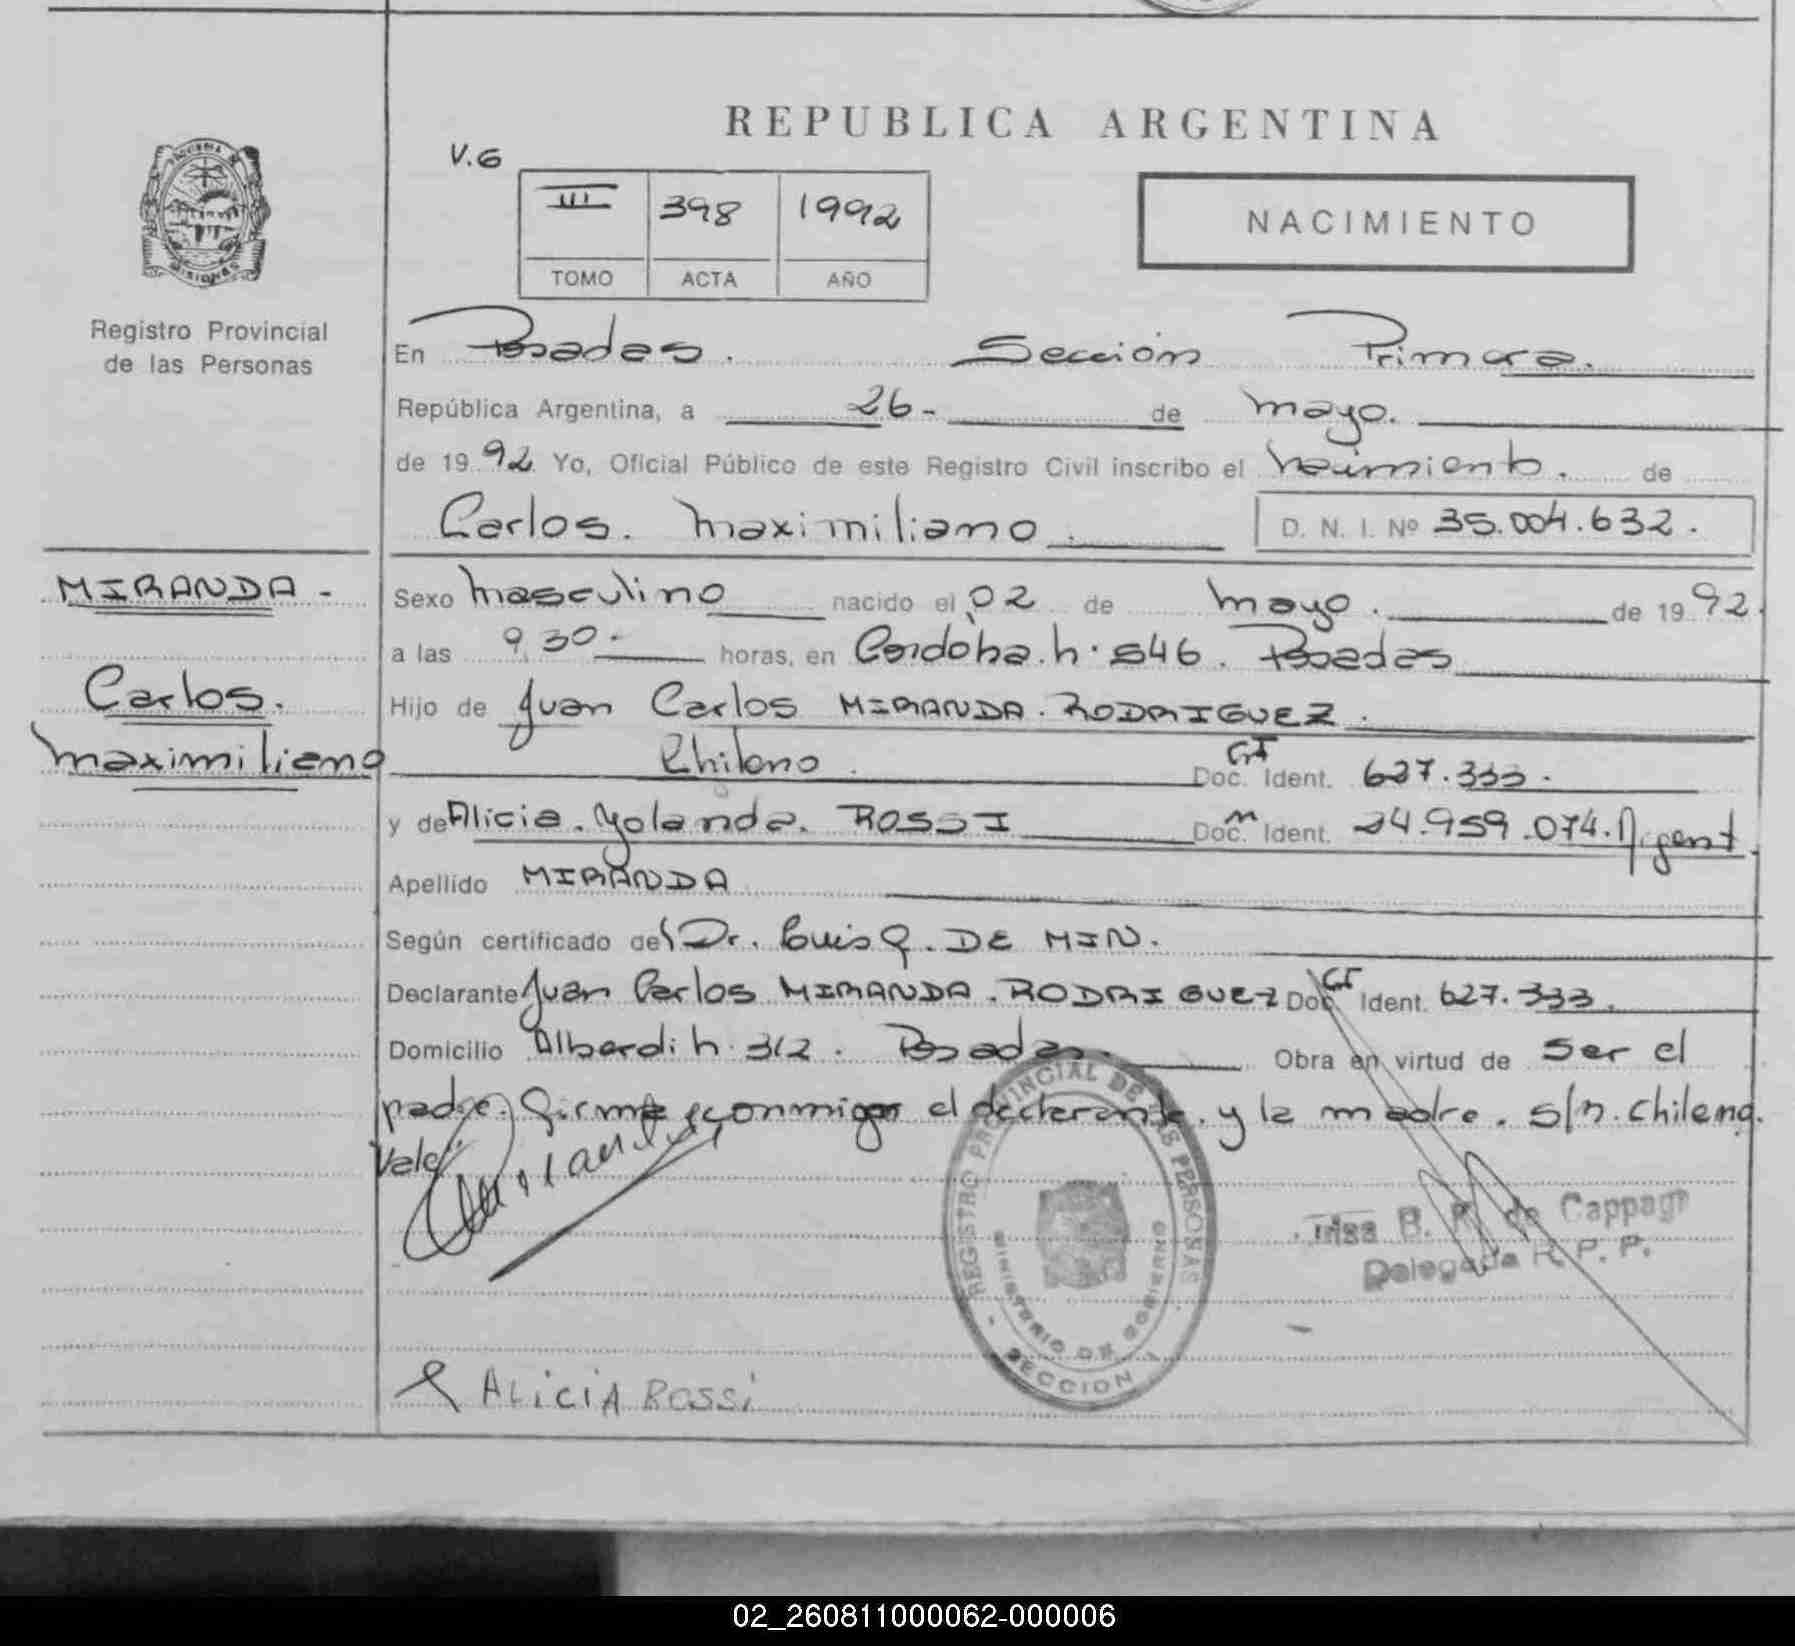 REPUBLICA ARGENTINA
V.G
III 398 1992
TOMO ACTA AÑO
NACIMIENTO
PROVINCIA DE MISIONES
Registro Provincial
de las Personas
En Posadas. Sección Primera.
República Argentina, a 26- de mayo.
de 1992 Yo, Oficial Público de este Registro Civil inscribo el nacimiento. de
Carlos. Maximiliano. D. N. I. Nº 35.004.632.
MIRANDA -
Carlos.
Maximiliano
Sexo masculino nacido el 02 de mayo. de 1992.
a las 9,30.- horas, en Cordoba. n. 546. Posadas
Hijo de Juan Carlos MIRANDA. RODRIGUEZ.
Chileno. CI Doc. Ident. 627.333.
y de Alicia. Yolanda. ROSSI Doc. Ident. 24.959.074. Argent.
Apellido MIRANDA
Según certificado del Dr. Luis Q. DE MIN.
Declarante Juan Carlos MIRANDA. RODRIGUEZ CI Doc. Ident. 627.333.
Domicilio Alberdi n. 312. Posadas. Obra en virtud de ser el
padre. Firma conmigo el declarante. y la madre. s/r. chileno.
Vale.
REGISTRO PROVINCIAL DE LAS PERSONAS
MINISTERIO DE GOBIERNO
SECCION
B. de Cappagli
Delegada R. P. P.
ALICIA ROSSI
02_260811000062-000006